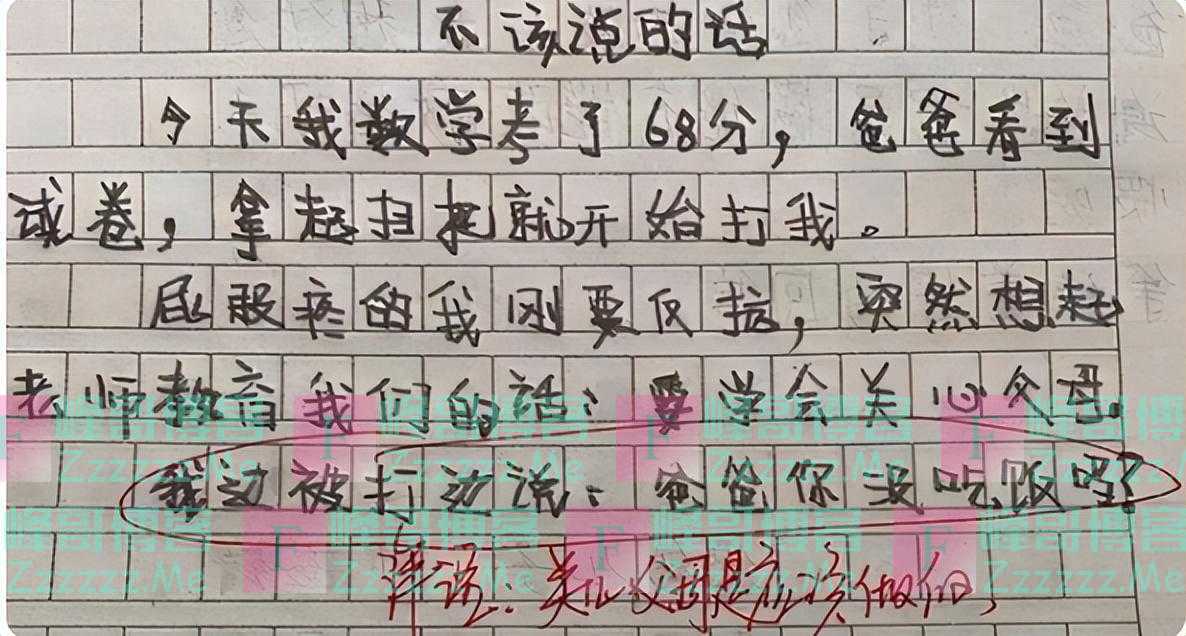 不该说的话
今天我数学考了68分，爸爸看到
试卷，拿起扫把就开始打我。
屁股疼的我刚要反抗，突然想起
老师教育我们的话：要学会关心父母。
我边被打边说：爸爸你没吃饭吗？
峰哥博客
Zzzzzz.Me
峰哥博客
Zzzzzz.Me
峰哥博客
Zzzzzz.Me
峰哥博客
Zzzzzz.Me
评说：关心父母是应该做的，